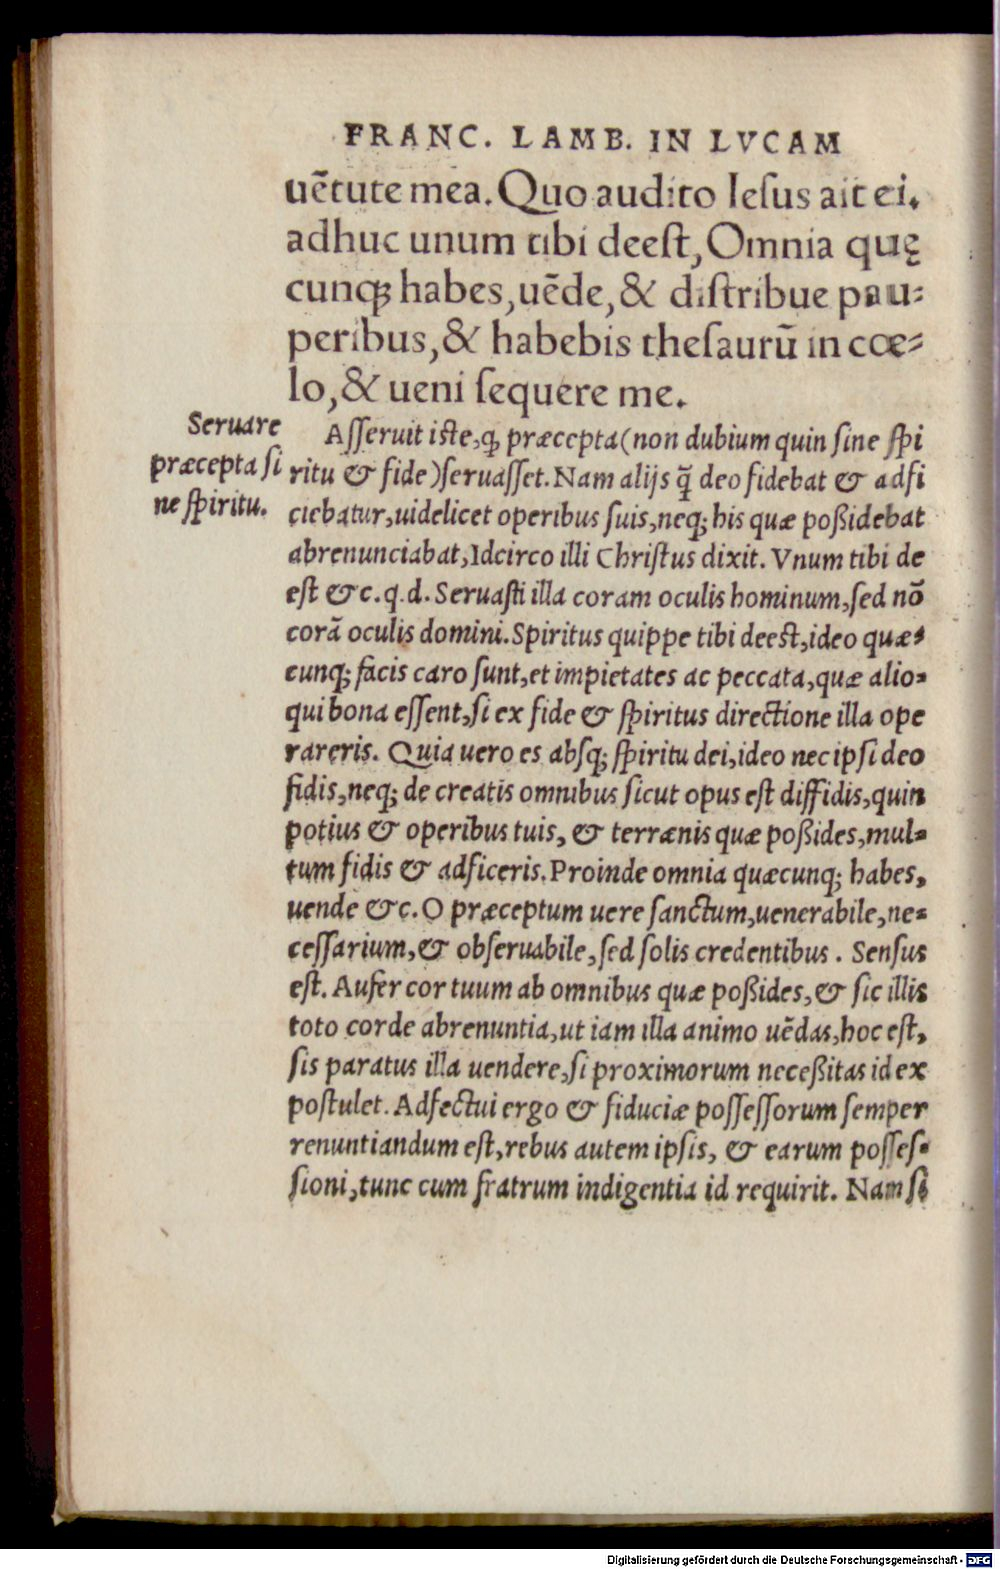 FRANC. LAMB. IN LVCAM
uẽtute mea. Quo audito Iesus ait ei.
adhuc unum tibi deest, Omnia quę
cunq; habes, uẽde, & distribue pau-
peribus, & habebis thesaurũ in cœ-
lo, & ueni sequere me.
Seruare
præcepta si
ne spiritu.
Asseruit iste, q̃ præcepta (non dubium quin sine spi
ritu & fide) seruasset. Nam alijs q̃ deo fidebat & adfi
ciebatur, uidelicet operibus suis, neq; his quæ poßidebat
abrenunciabat, Idcirco illi Christus dixit. Vnum tibi de
est &c. q.d. Seruasti illa coram oculis hominum, sed nõ
corã oculis domini. Spiritus quippe tibi deest, ideo quæ-
cunq; facis caro sunt, et impietates ac peccata, quæ alio-
qui bona essent, si ex fide & spiritus directione illa ope
rareris. Quia uero es absq; spiritu dei, ideo nec ipsi deo
fidis, neq; de creatis omnibus sicut opus est diffidis, quin
potius & operibus tuis, & terrænis quæ poßides, mul-
tum fidis & adficeris. Proinde omnia quæcunq; habes,
uende &c. O præceptum uere sanctum, uenerabile, ne-
cessarium, & obseruabile, sed solis credentibus. Sensus
est. Aufer cor tuum ab omnibus quæ poßides, & sic illis
toto corde abrenuntia, ut iam illa animo uẽdas, hoc est,
sis paratus illa uendere, si proximorum neceßitas id ex
postulet. Adfectui ergo & fiduciæ possessorum semper
renuntiandum est, rebus autem ipsis, & earum posses-
sioni, tunc cum fratrum indigentia id requirit. Nam si
Digitalisierung gefördert durch die Deutsche Forschungsgemeinschaft - DFG